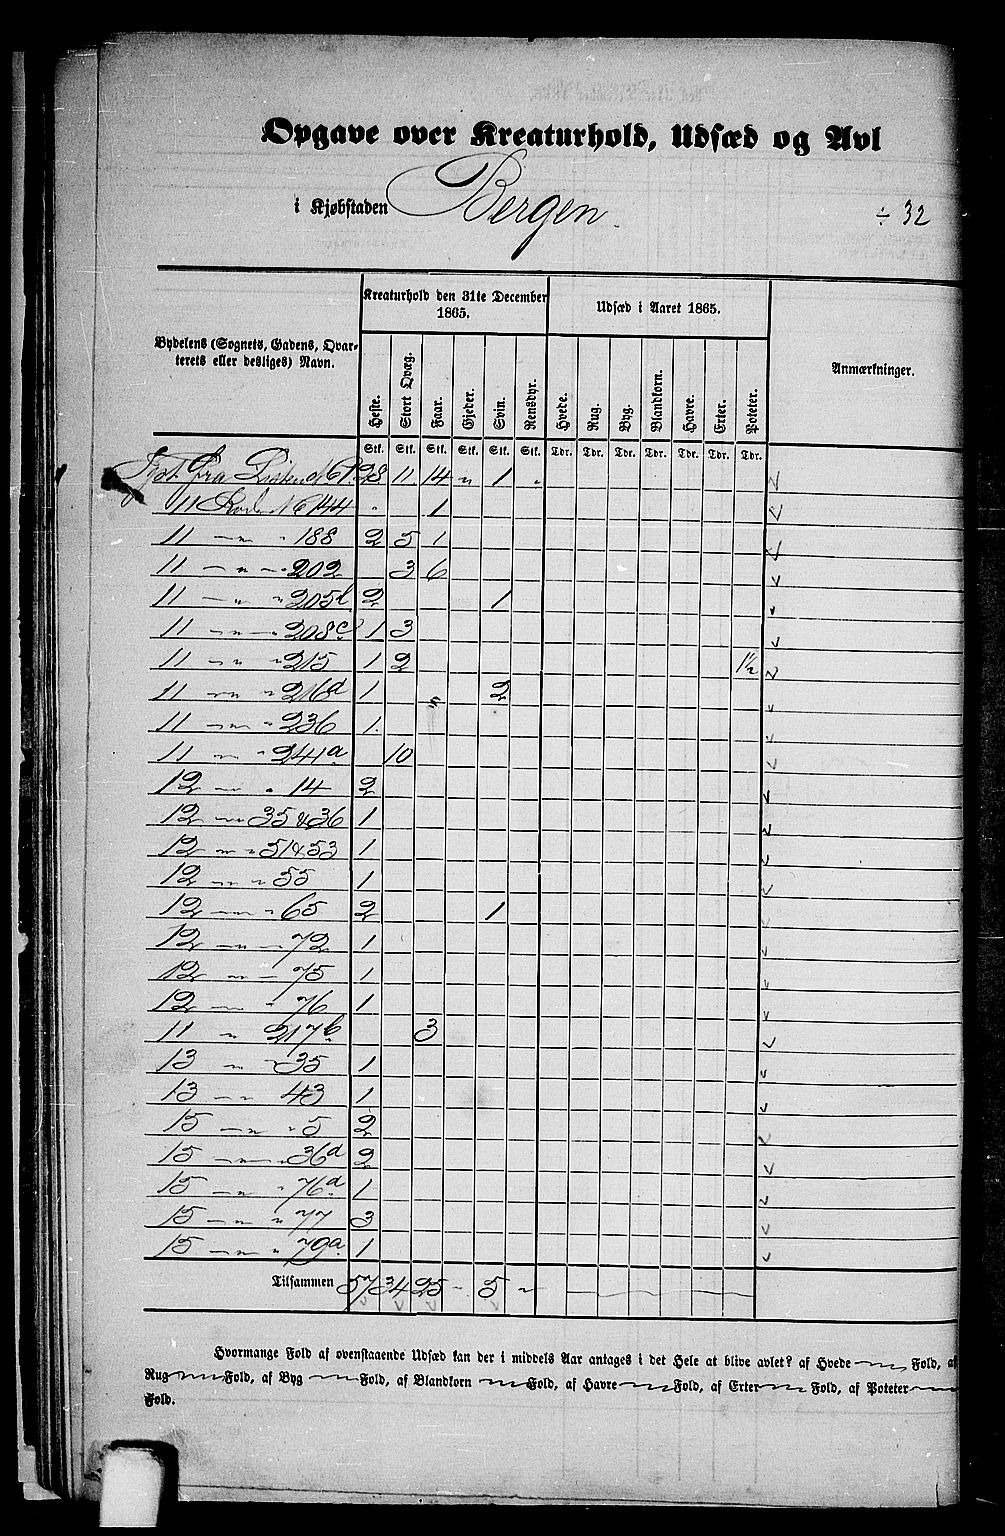 Opgave over Kreaturhold, Udsæd og Avl
i Kjøbstaden Bergen.
÷ 32
Bydelens (Sognets, Gadens, Qvarterets eller desliges) Navn.
Kreaturhold den 31te December 1865.
Udsæd i Aaret 1865.
Anmærkninger.
Heste. Stort Qvæg. Faar. Gjeder. Svin. Rensdyr. Hvede. Rug. Byg. Blandkorn. Havre. Erter. Poteter.
Stk. Stk. Stk. Stk. Stk. Stk. Tdr. Tdr. Tdr. Tdr. Tdr. Tdr. Tdr.
fra 28 11 14 " 1 "
11 Rode № 144 " 1
11 — " — " 188 2 5 1
11 — " — " 202 3 6
11 — " — " 205b 2 1
11 — " — " 208c 1 3
11 — " — " 215 1 2 1½
11 — " — " 216a 1 2
11 — " — " 236 1.
11 — " — " 241a 10
12 — " — " 14 2
12 — " — 35 & 36 1
12 — " — " 51 & 53 1
12 — " — " 55 1
12 — " — " 65 2 1
12 — " — 72 1
12 — " — 75 1
12 — " — " 76 1
11 " 217b 3
13 — " — 35 1
13 — " — 43 1
15 — " — " 5 2
15 — " — 36a 2
15 — " — " 76a 1
15 — " — " 77 3
15 — " — " 79a 1
Tilsammen 57 34 25 — 5 —
Hvormange Fold af ovenstaaende Udsæd kan der i middels Aar antages i det Hele at blive avlet? af Hvede — " — Fold, af
Rug — " — Fold, af Byg — " — Fold, af Blandkorn — " — Fold, af Havre — " — Fold, af Erter — " — Fold, af Poteter — " —
Fold.